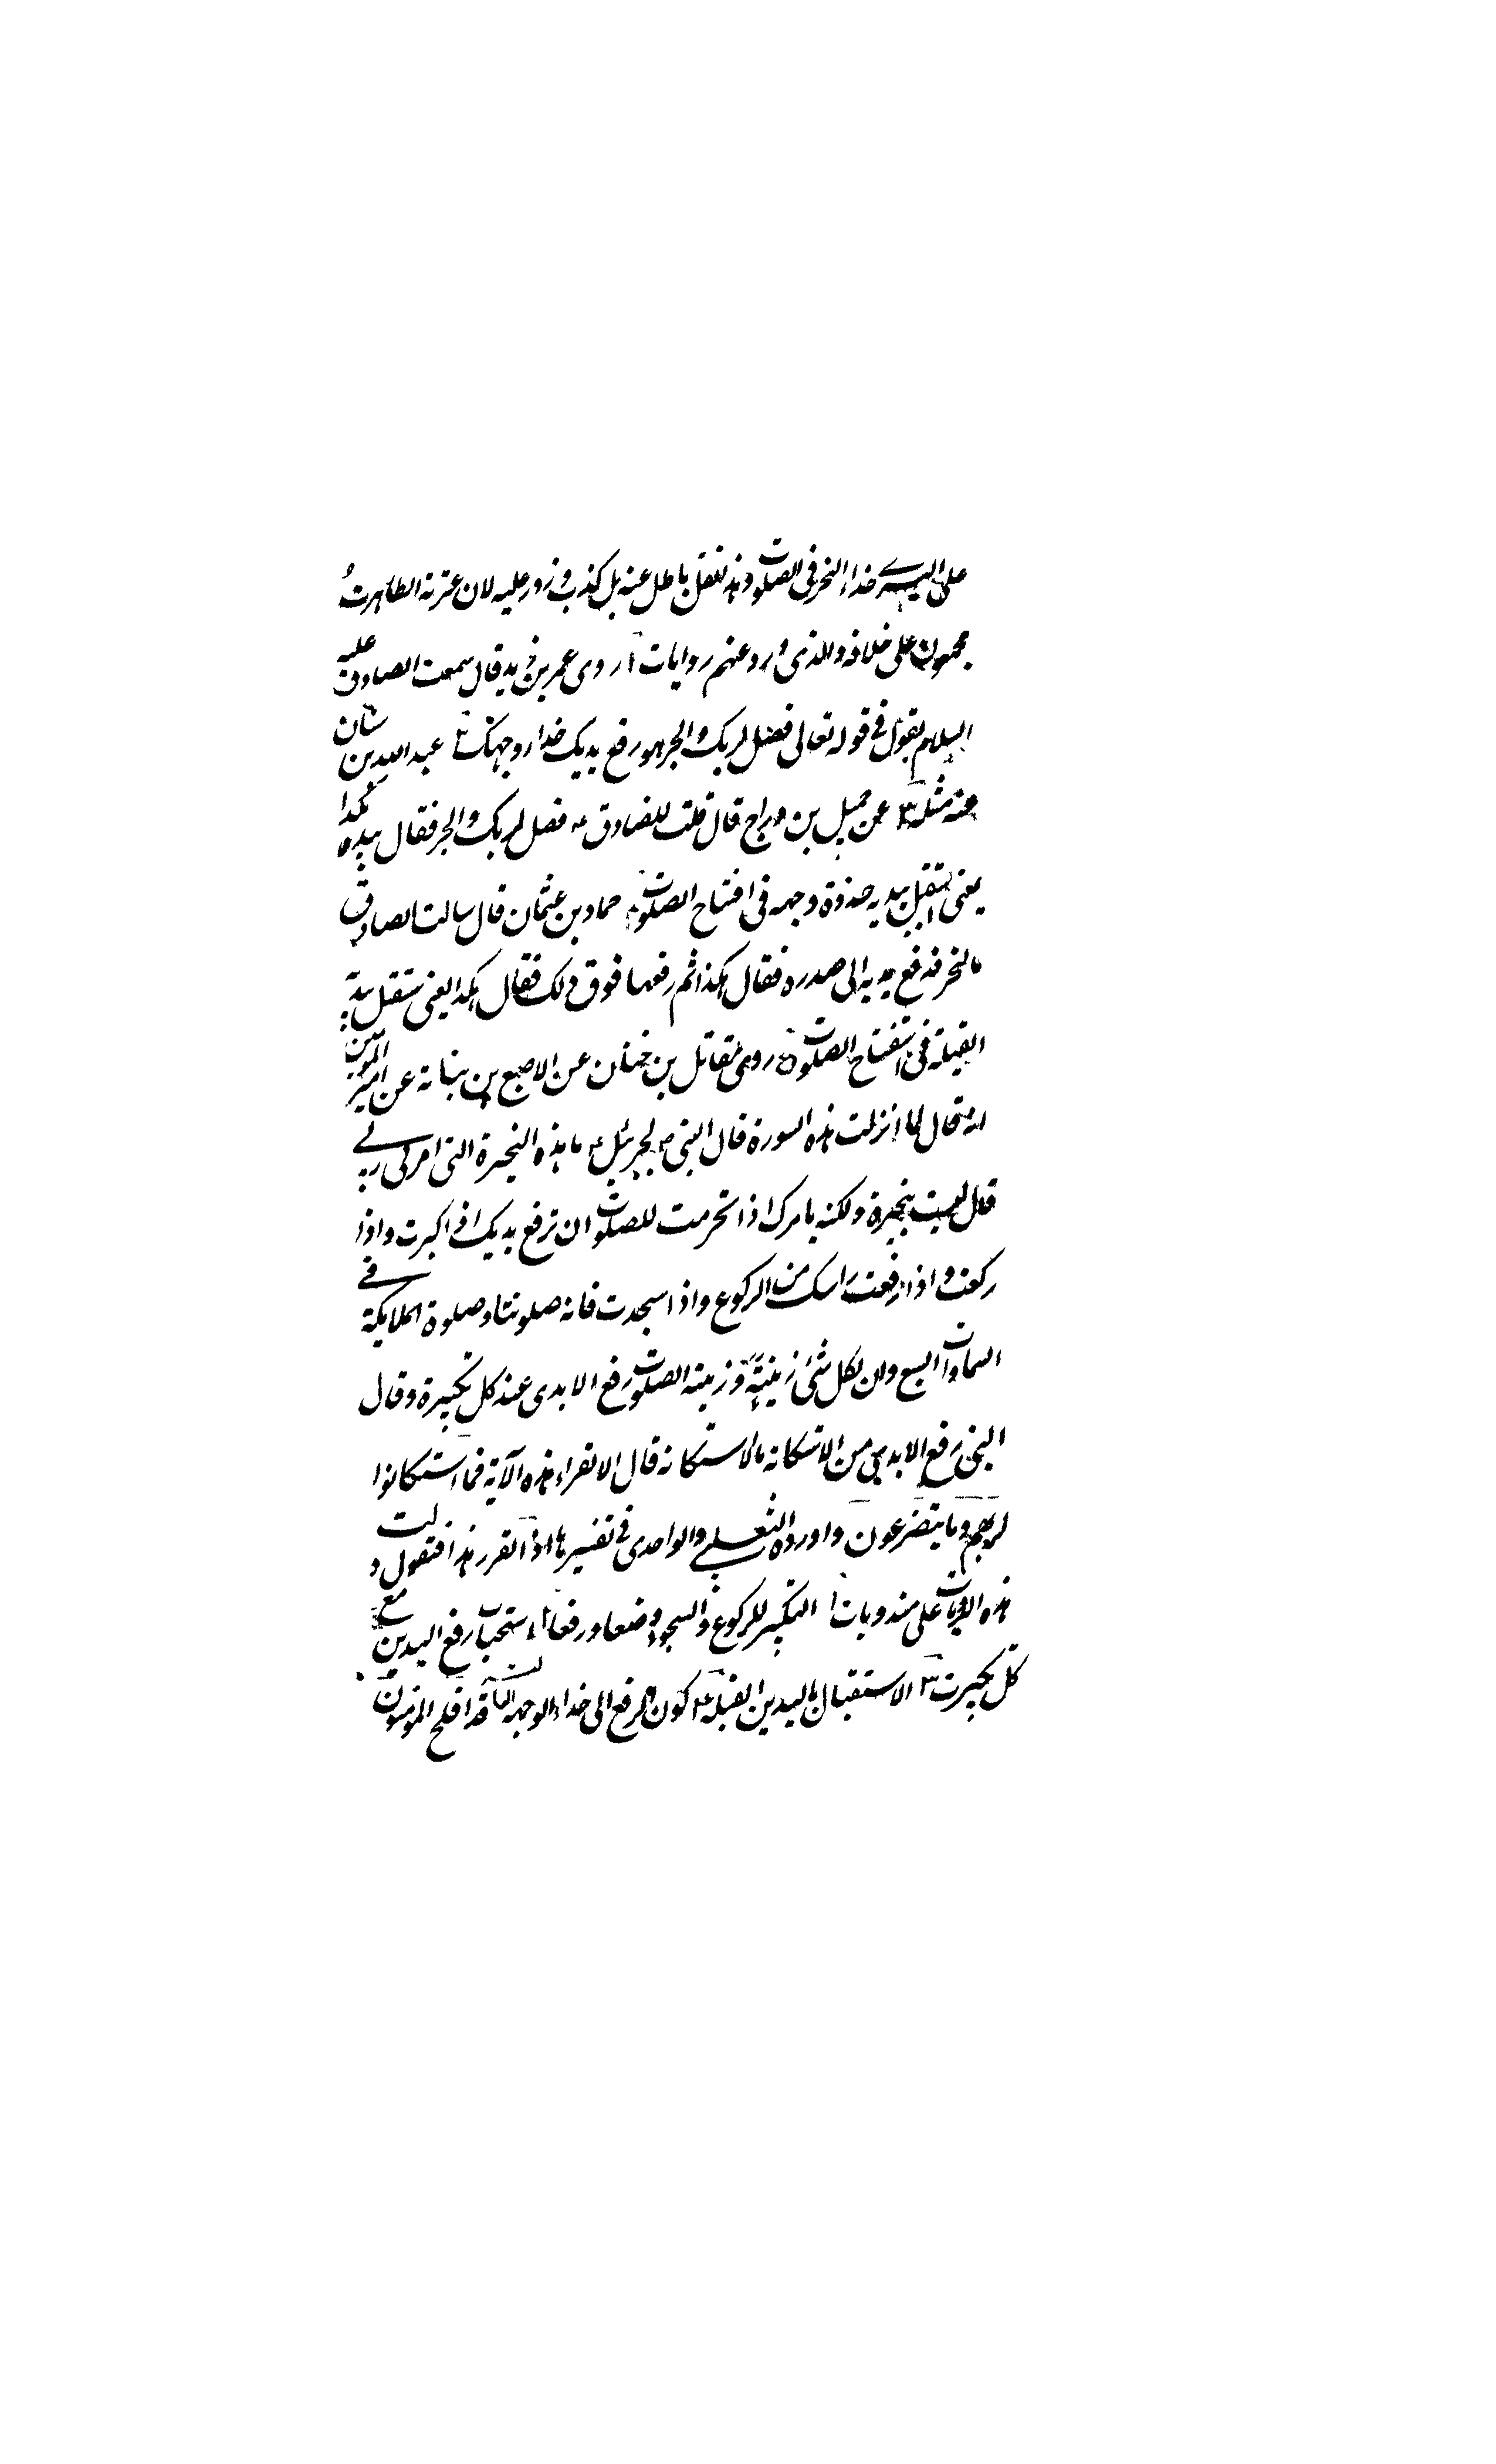 على اليسرى حذاء النحر فى الصلوة وهذا نقل باطل عنه بل كذب وزور عليه لان عترته الطاهرة
مجمعون على خلافه والذى ورد عنهم روايات ا روى عمر بن يزيد قال سمعت الصادق عليه
السلام يقول فى قوله تعالى فصل لربك وانحر هو رفع يديك حذاء وجهك ٢ عبد الله بن سنان
عنه مثله ٣ عن جميل بن دراج قال قلت للصادق ع فصل لربك وانحر فقال بيده هكذا
يعنى استقبل بيديه حذوة وجهه فى افتتاح الصلوة حماد بن عثمان قال سالت الصادق
ما النحر فرفع يديه الى صدره فقال هكذا ثم رفعها فوق ذلك فقال هكذا يعنى يستقبل بيديه
القبلة فى استفتاح الصلوة ٥ روى مقاتل بن حنان عن الاصبغ بن بنانة عن امير المومنين
قال لما انزلت هذه السورة قال النبى ص لجبرئيل ع ما هذه النحيرة التى امرنى ربى
قال ليست بنحيرة ولكنه يامرك اذا تحرمت للصلوة ان ترفع يديك اذا كبرت واذا
ركعت واذا رفعت راسك من الركوع واذا سجدت فانه صلوتنا وصلوة الملايكة فى
السماوات السبع وان لكل شئ زينة وزينة الصلوة رفع الايدى عند كل تكبيرة وقال
النبى رفع الايدى من الاستكانة ما الاستكانة قال الا تقراء هذه الآية فما استكانوا
لربهم وما يتضرعون واورده الثعلبى والواحدى فى تفسيرها اذا تقرر هذا فنقول دلت
هذه الروايات على مندوبات ا التكبير للركوع والسجود وضعا ورفعا ٢ استحباب رفع اليدين مع
كل تكبيرت ٣ الاستقبال باليدين القبلة ٤ كون الرفع الى حذاء الوجه الثامنة قد افلح المؤمنون